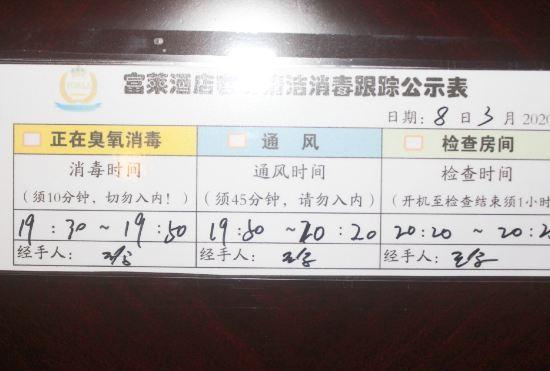 富莱酒店客房清洁消毒跟踪公示表
日期: 8 日 3 月 2020
正在臭氧消毒 通风 检查房间
消毒时间 通风时间 检查时间
(须10分钟，切勿入内！) (须45分钟，请勿入内) (开机至检查结束须1小时
19:30~19:50 19:50~20:20 20:20~20:2
经手人: 经手人: 经手人: